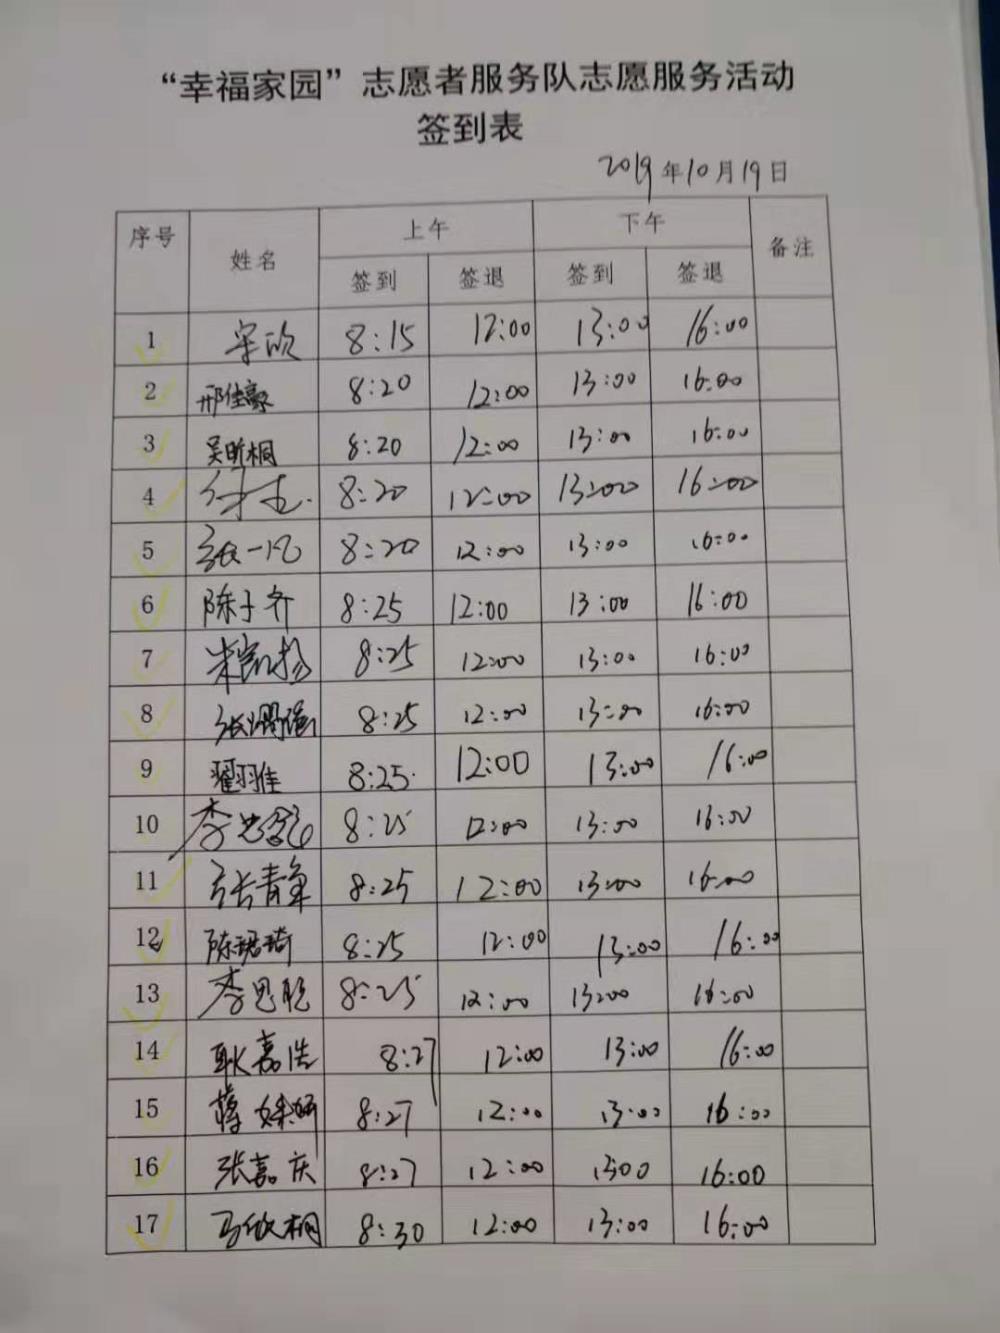 “幸福家园”志愿者服务队志愿服务活动
签到表
2019年10月19日
序号 姓名 上午 下午 备注
签到 签退 签到 签退
1 宋欣 8:15 12:00 13:00 16:00
2 邢佳豪 8:20 12:00 13:00 16:00
3 吴昕桐 8:20 12:00 13:00 16:00
4 8:20 12:00 13:00 16:00
5 张一凡 8:20 12:00 13:00 16:00
6 陈子齐 8:25 12:00 13:00 16:00
7 朱凯扬 8:25 12:00 13:00 16:00
8 张 8:25 12:00 13:00 16:00
9 翟羽佳 8:25 12:00 13:00 16:00
10 李 8:25 12:00 13:00 16:00
11 张青 8:25 12:00 13:00 16:00
12 陈珺琦 8:25 12:00 13:00 16:00
13 李思聪 8:25 12:00 13:00 16:00
14 耿嘉浩 8:27 12:00 13:00 16:00
15 蒋 8:27 12:00 13:00 16:00
16 张嘉庆 8:27 12:00 1300 16:00
17 马欣桐 8:30 12:00 13:00 16:00